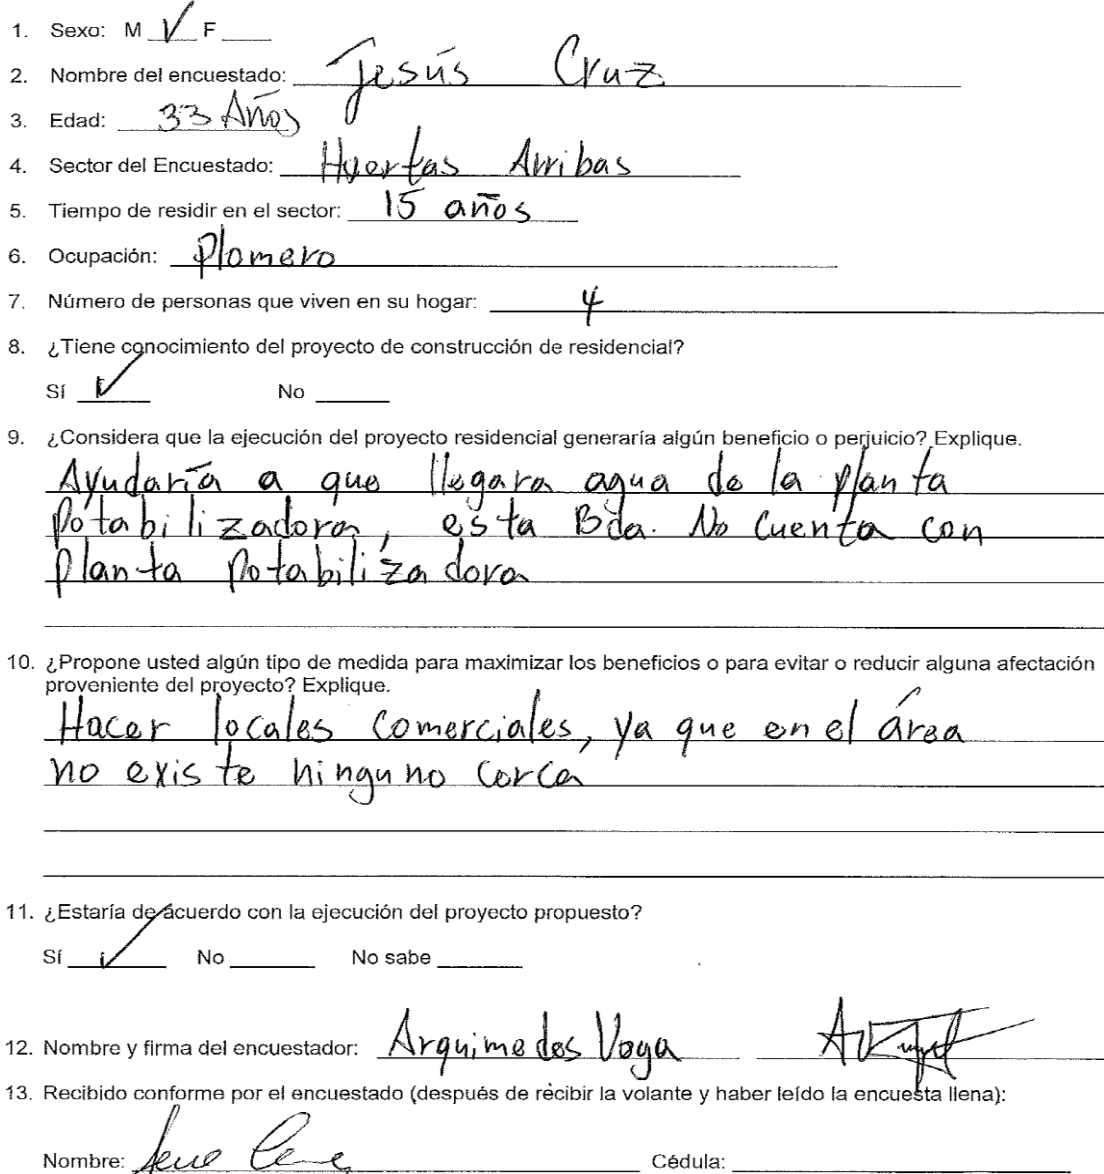 1. Sexo: M √ F ____
2. Nombre del encuestado: Jesús Cruz
3. Edad: 33 Años
4. Sector del Encuestado: Huertas Arribas
5. Tiempo de residir en el sector: 15 años
6. Ocupación: Plomero
7. Número de personas que viven en su hogar: 4
8. ¿Tiene conocimiento del proyecto de construcción de residencial?
Sí √ No ____
9. ¿Considera que la ejecución del proyecto residencial generaría algún beneficio o perjuicio? Explique.
Ayudaría a que llegara agua de la planta
Potabilizadora, esta Bda. No Cuenta con
Planta Potabilizadora
10. ¿Propone usted algún tipo de medida para maximizar los beneficios o para evitar o reducir alguna afectación
proveniente del proyecto? Explique.
Hacer locales Comerciales, ya que en el área
no existe ninguno cerca
11. ¿Estaría de acuerdo con la ejecución del proyecto propuesto?
Sí √ No ____ No sabe ____
12. Nombre y firma del encuestador: Arquimedes Vega
13. Recibido conforme por el encuestado (después de recibir la volante y haber leído la encuesta llena):
Nombre: ____ Cédula: ____